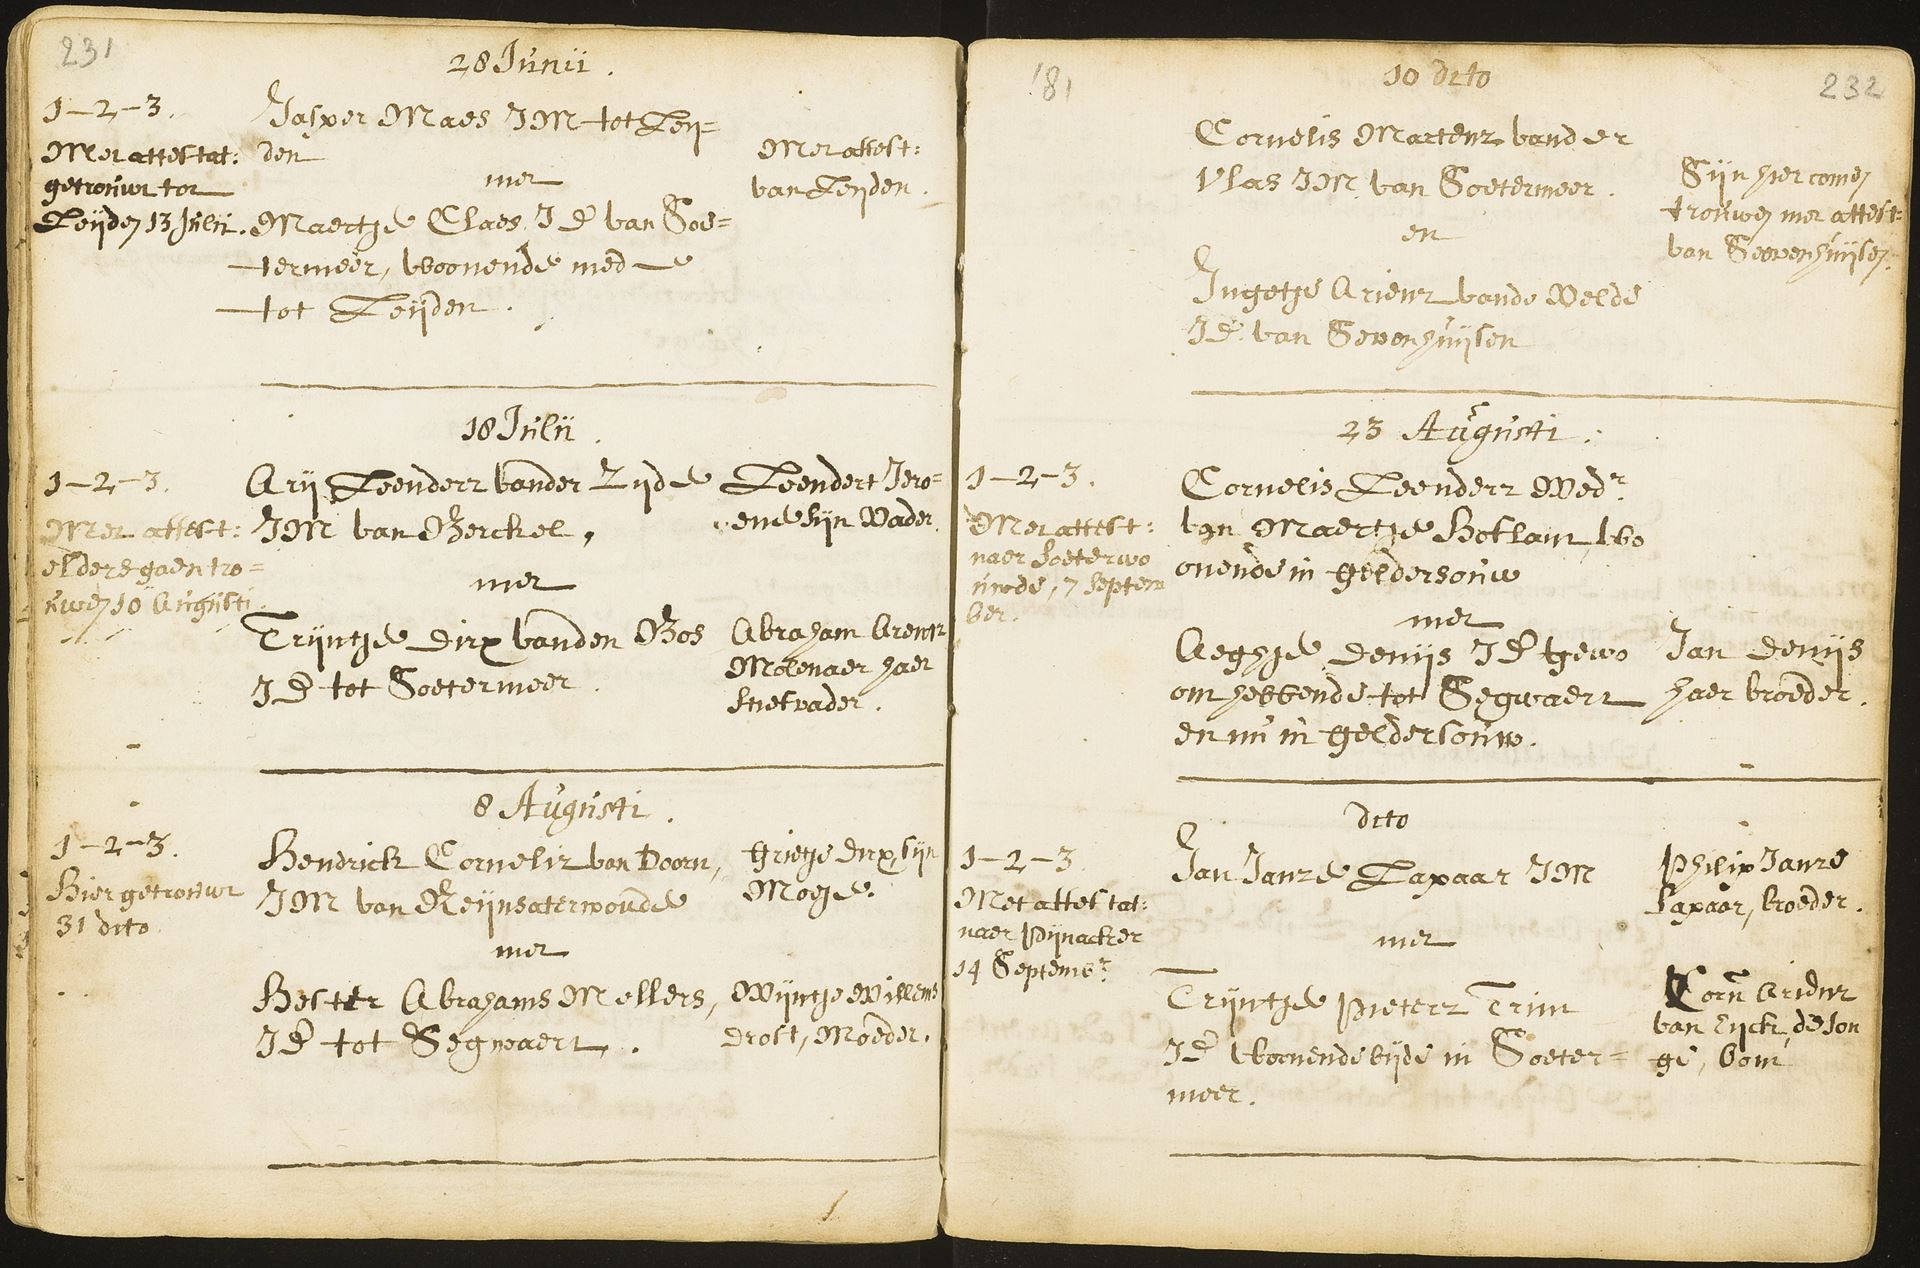 231
28 Junii.
1-2-3.
Met attestat:
getrouwt tot
Leijden 13 Julii.
Jasper Maes JM tot Leij=
den
met
Maertje Claes JD van Soe=
termeer, woonende mede
tot Leijden.
Met attest:
van Leijden.
18 Julii.
1-2-3.
Met attest:
elders gaen tro=
uwen 10 Augusti.
Arij Leendertz vander Zijde
JM van Berckel,
met
Trijntje Dirx vanden Bos
JD tot Soetermeer.
Leendert Jero=
ene sijn Vader.
Abraham Arentz
Molenaer haer
stiefvader.
8 Augusti.
1-2-3.
Hier getrouwt
31 dito
Hendrick Cornelisz van Doorn,
JM van Reijnsaterwoude
met
Hester Abrahams Mellers,
JD tot Segwaert.
Grietje Dirx, sijn
Moeje.
Wijntje Willems
Drost, Moeder.
181
232
10 dito
Cornelis Martenz vander
Vlas JM van Soetermeer.
en
Ingetje Arienz vande Velde
JD van Sevenhuijsen
Sijn hier comen
trouwen met attest:
van Sevenhuijsen.
23 Augusti.
1-2-3.
Met attest:
naer Soeterwo
uwde, 7 Septem
ber.
Cornelis Leendertz Wedr.
van Maertje Hotlam, wo
onende in Geldersouw
met
Aeghje Denijs JD gewo
ont hebbende tot Segwaert
en nu in Geldersouw.
Jan Denijs
haer broeder.
dito
1-2-3
Met attestat:
naer Pijnacker
14 Septembr.
Jan Janze Lapaar JM
met
Trijntje Pieterz Trim
JD woonende bijde in Soeter=
meer.
Philip Janze
Lapaar, broeder.
Corn Ariensz
van Eijck, de Jon
ge, Oom